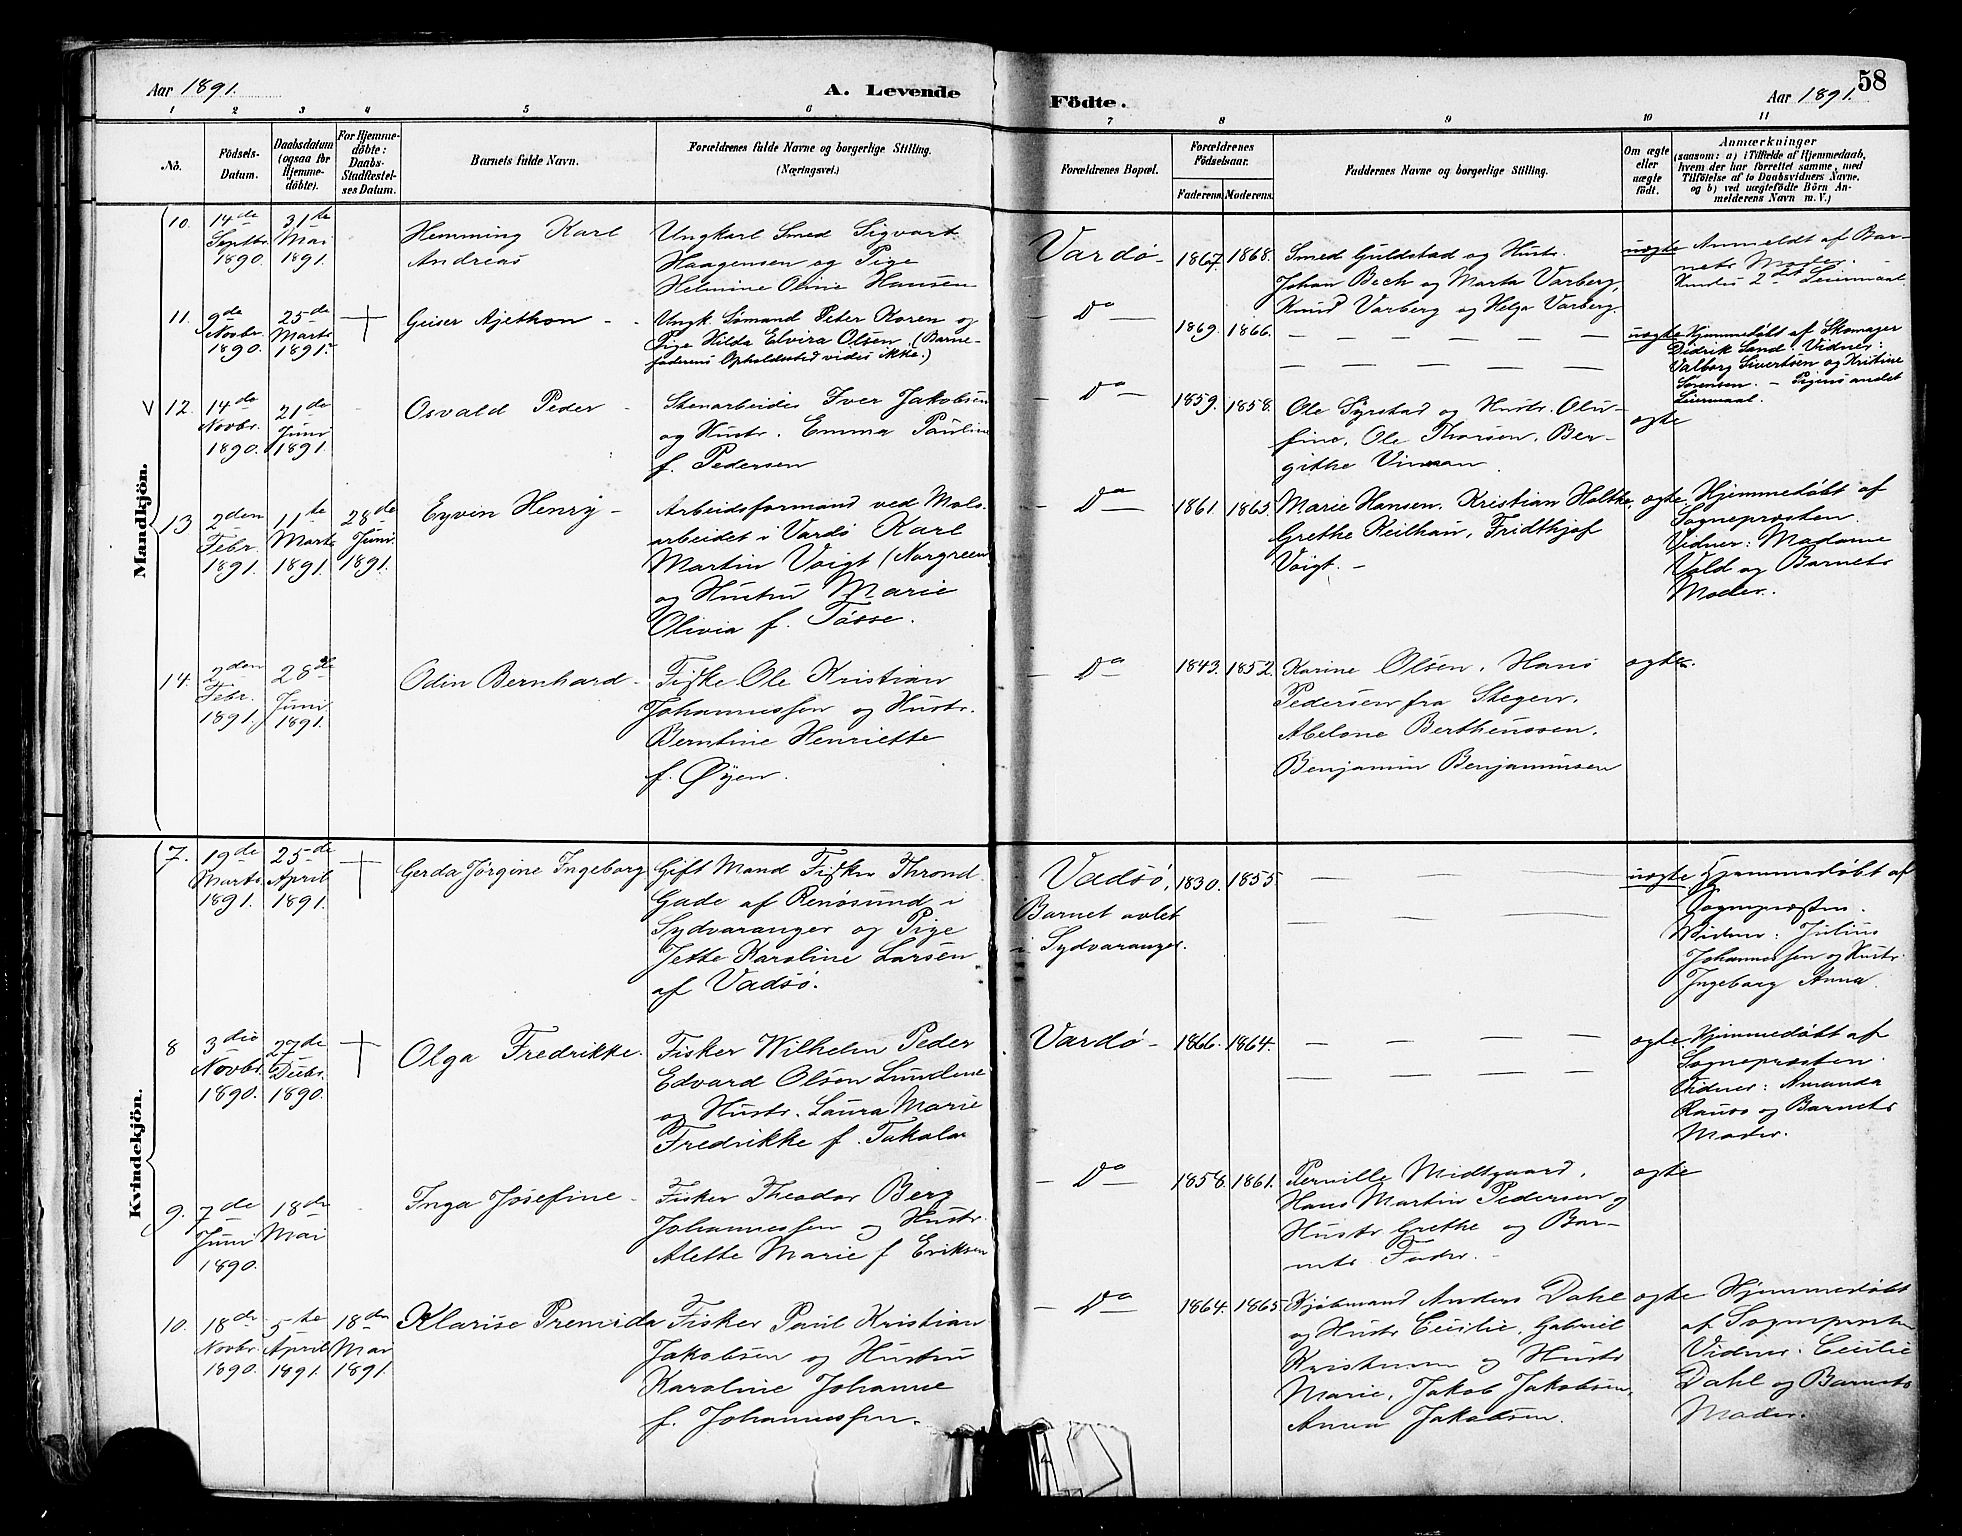 Aar 1891.
A. Levende
Födte.
Aar 1891.
58
1 2 3 4 5 6 7 8 9 10 11
No.
Födsels-
Datum.
Daabsdatum
(ogsaa for
Hjemme-
döbte).
For Hjemme-
döbte:
Daabs-
Stadfæstel-
ses Datum.
Barnets fulde Navn.
Forældrenes fulde Navne og borgerlige Stilling.
(Næringsvei.)
Forældrenes Bopæl.
Forældrenes
Födselsaar.
Faderens. Moderens.
Faddernes Navne og borgerlige Stilling.
Om ægte
eller
uægte
födt.
Anmærkninger
(saasom: a) i Tilfælde af Hjemmedaab,
hvem der har forrettet samme, med
Tilföielse af to Daabsvidners Navne,
og b) ved uægtefödte Börn An-
melderens Navn m. V.)
Mandkjön.
10.
14de
Septbr.
1890.
31te
Mai
1891.
Hemming Karl
Andreas
Ungkarl Smed Sigvart
Haagensen og Pige
Helmine Oline Hansen
Vardø
1867. 1868.
Smed Guldstad og Hustr.
Johan Bech og Marta Varberg,
Knud Varberg og Helga Varberg.
uægte
Anmeldt af Bar-
nets Moder.
Kundes 2det Leiermaal.
11.
9de
Novbr.
1890.
25de
Marts
1891.
Geiser Ajethon
Ungk. Sømand Peter Koren og
Pige Hilda Elvira Olsen (Barne-
faderens Opholdssted vides ikke.)
Do
1869. 1866.
uægte
Hjemmedøbt af Skomager
Didrik Sand. Vidner:
Valborg Sivertsen og Kristine
Sørensen. - Pigens andet
Leiermaal.
V 12.
14de
Novbr.
1890.
21de
Juni
1891.
Osvald Peder
Stenarbeider Iver Jakobsen
og Hustr. Emma Pauline
f. Pedersen
Do
1859. 1858.
Ole Syrstad og Hustr. Olu-
fine, Ole Thorsen, Ber-
githe
ægte
13
2den
Febr.
1891.
11te
Marts
1891.
28de
Juni
1891.
Eyvin Henry
Arbeidsformand ved Molo-
arbeidet i Vardø Karl
Martin Voigt (Norgreen)
og Hustru Marie
Olivia f. Tøsse.
Do
1861. 1865.
Marie Hansen, Kristian Holtke,
Grethe Keilhau, Fridthjof
Voigt.
ægte
Hjemmedøbt af
Sognepræsten.
Vidner: Madame
Vold og Barnets
Moder.
14.
2den
Febr.
1891.
28de
Juni
1891.
Odin Bernhard
Fisker Ole Kristian
Johannessen og Hustr.
Berntine Henriette
f. Øyen.
Do
1843. 1852.
Karine Olsen, Hans
Pedersen fra Stegen,
Abelone Bertheussen,
Benjamin Benjaminsen
ægte
Kvindekjön.
7.
19de
Marts
1891.
25de
April
1891.
Gerda Jørgine Ingeborg
Gift Mand Fisker Thrond
Gade af Renøsund i
Sydvaranger og Pige
Jette Karoline Larsen
af Vadsø.
Vadsø,
Barnet avlet
i Sydvaranger.
1830. 1855.
uægte
Hjemmedøbt af
Sognepræsten.
Vidner: Julius
Johannessen og Hustr.
Ingeborg Anna
8
3die
Novbr.
1890.
27de
Decbr.
1890.
Olga Fredrikke.
Fisker Wilhelm Peder
Edvard Olsen Lundene
og Hustr. Laura Marie
Fredrikke f. Takala
Vardø
1866. 1864.
ægte.
Hjemmedøbt af
Sognepræsten.
Vidner: Amanda
og Barnets
Moder.
9.
7de
Juni
1890.
18de
Mai
Inga Josefine
Fisker Theodor Berg
Johannessen og Hustr.
Alette Marie f Eriksen
Do
1858. 1861.
Pernille Midtgaard,
Hans Martin Pedersen og
Hustr Grethe og Bar-
nets Fader.
ægte
10.
18de
Novbr.
1890.
5te
April
1891.
18de
Mai
1891.
Klarise Premida
Fisker Paul Kristian
Jakobsen og Hustru
Karoline Johanne
f. Johannessen.
Do
1864. 1865
Kjøbmand Anders Dahl
og Hustr Cecilie, Gabriel
og Hustr
Marie, Jakob Jakobsen,
Anna Jakobsen.
ægte
Hjemmedøbt
af Sognepræsten
Vidner: Cecilie
Dahl og Barnets
Moder.